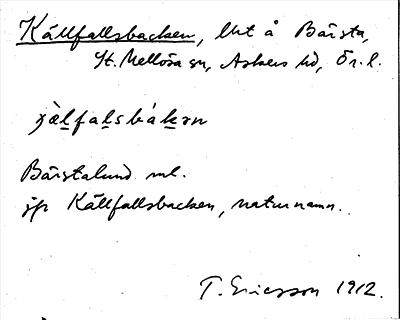 Källfallsbacken, lht å Bärsta,
St. Mellösa sn, Askers hd, Ör. l.
Bärstalund ml.
jfr Källfallsbacken, naturnamn.
T. Ericsson 1912.